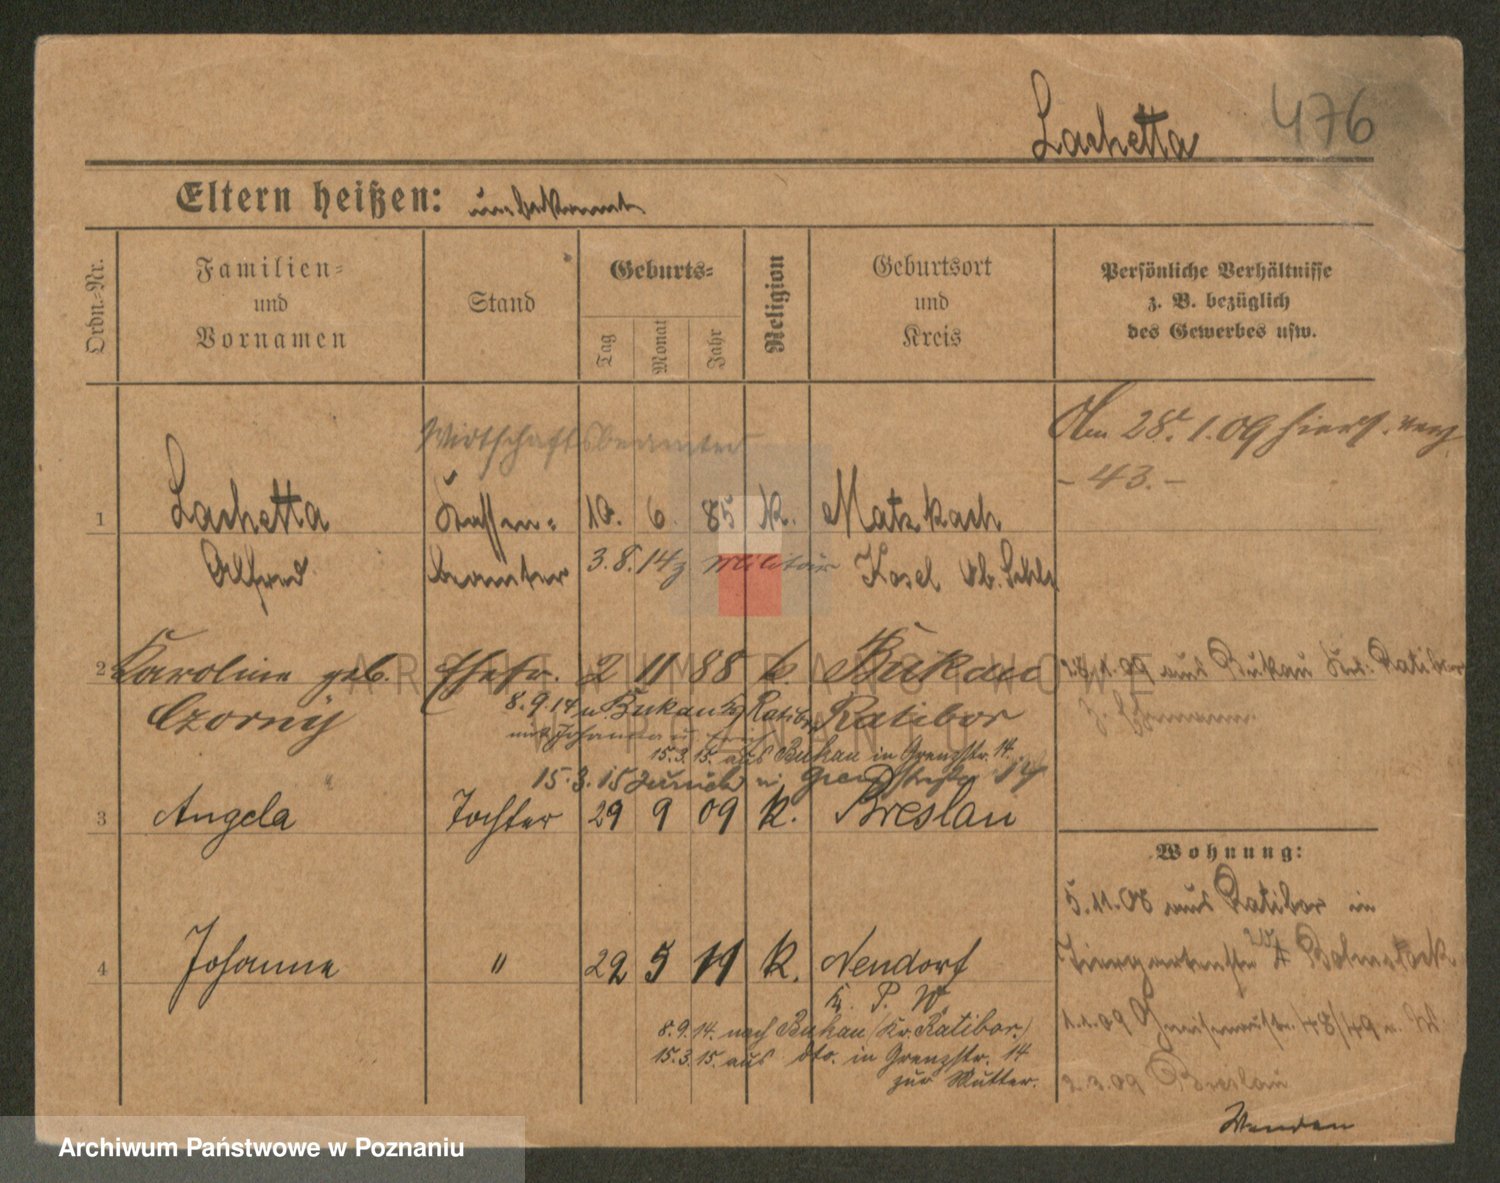 Lachetta 476
Eltern heißen: unbekannt
Ordn.-Nr.
Familien-
und
Vornamen
Stand
Geburts-
Tag
Monat
Jahr
Religion
Geburtsort
und
Kreis
Persönliche Verhältnisse
z. B. bezüglich
des Gewerbes usw.
Am 28. 1. 09 hiers. verz
- 43. -
Wirtschaftsbeamter
1 Lachetta Kassen- 10. 6. 85 K. Matzkach
Alfred beamter 3. 8. 14 z Militär Kosel Ob. Schls
2 Karoline geb. Ehefr. 2 11 88 k. Bukau
28/1. 09 aus Bukau Krs. Ratibor
z. Ehemann.
Czorny 8. 9. 14 n. Bukau Ratibor Ratibor
mit Johanna
15. 3. 15. aus Bukau in Grenzstr. 14.
15. 3. 15 zurück in Grenzstraße 14
3 Angela Tochter 29 9 09 k. Breslau
Wohnung:
5. 11. 08 aus Ratibor in
Tiergartenstr
4 Johanna " 29 5 11 k. Nendorf
K. P. W.
1. 1. 09 Gneisenaustr. 48/49
8. 9. 14. nach Bukau (Kr. Ratibor.)
15. 3. 15. aus dto. in Grenzstr. 14
zur Mutter.
2. 3. 09 Breslau
Wenden
ARCHIWUM PAŃSTWOWE
W POZNANIU
Archiwum Państwowe w Poznaniu